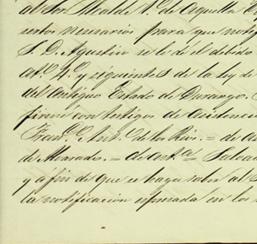 al Sor. Alcalde 1.o de Coquilla
sertos necesarios para que notif
S. D. Agustin se le dé el debido
art. 2 y siguientes de la ley de
del Antiguo Estado de Durango.
firmó con testigos de asistencia
Franco. Ant. de los Rios. = de a
de Alvarado. = de asta. Salva
y a fin de que se haga saber al S
la notificacion espresada en los